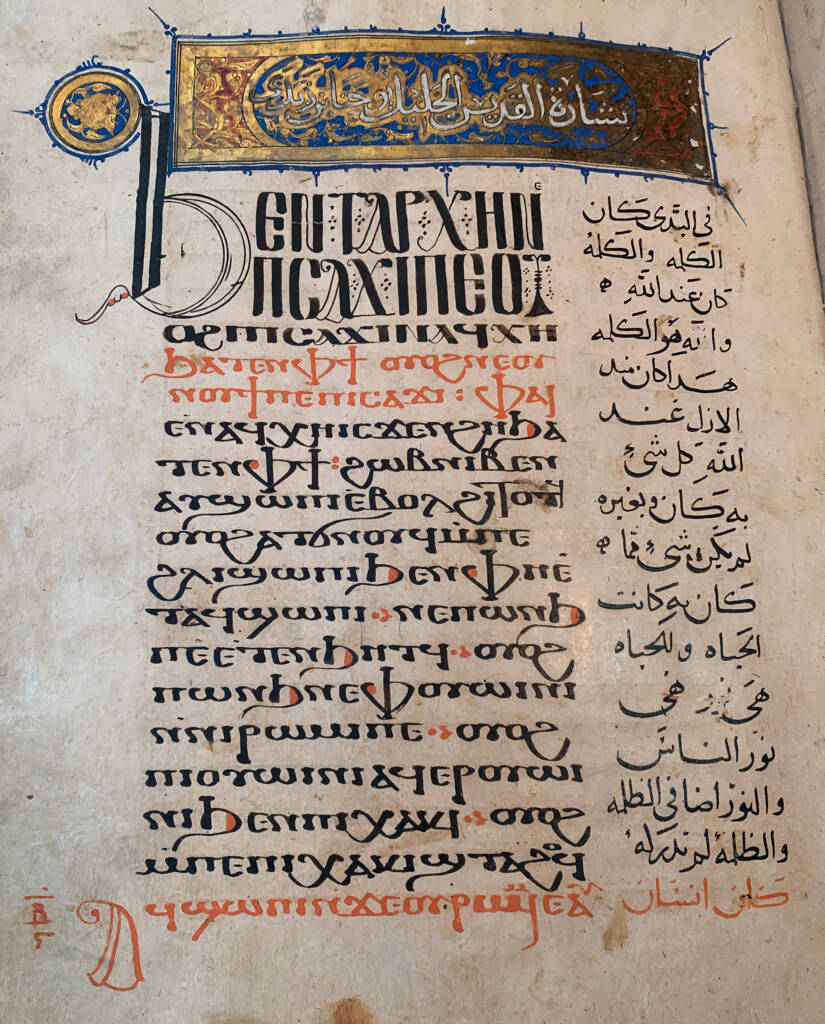 بشارة القديس الجليل يوحنا بن زبدى
ϦΕΝ ΤΑΡΧΗ Ν̇Ε
ΠΣΑϪΙ ΠΕ Ο̇Ι
ⲟⲩⲟϩ ⲡⲓⲥⲁϫⲓ ⲛⲁϥⲭⲏ
ϧⲁⲧⲉⲛ ⲫϯ ⲟⲩⲟϩ ⲛⲉ ⲟⲩ
ⲛⲟⲩϯ ⲡⲉ ⲡⲓⲥⲁϫⲓ : ⲫⲁⲓ
ⲉⲛⲁϥⲭⲏ ⲓⲥϫⲉⲛ ϩⲏ ϧⲁ
ⲧⲉⲛ ⲫϯ : ϩⲱⲃ ⲛⲓⲃⲉⲛ
ⲁⲩϣⲱⲡⲓ ⲉ̇ⲃⲟⲗ ϩⲓⲧⲟⲧϥ
ⲟⲩⲟϩ ⲁⲧϭⲛⲟⲩϥ ⲙ̇ⲡⲉ
ϩⲗⲓ ϣⲱⲡⲓ ϧⲉⲛ ⲫⲏ ⲉ̇
ⲧⲁϥϣⲱⲡⲓ · ⲛⲉ ⲡⲱⲛϧ
ⲡⲉ ⲉ̇ⲧⲉ ⲛ̇ϧⲏⲧϥ · ⲟⲩⲟϩ
ⲡⲱⲛϧ ⲛⲉ ⲫⲟⲩⲱⲓⲛⲓ
ⲛ̇ⲛⲓⲣⲱⲙⲓ ⲡⲉ · ⲟⲩⲟϩ
ⲡⲓⲟⲩⲱⲓⲛⲓ ⲁϥⲉⲣⲟⲩⲱⲓ
ⲛⲓ ϧⲉⲛ ⲡⲓⲭⲁⲕⲓ · ⲟⲩⲟϩ
ⲙ̇ⲡⲉ ⲡⲓⲭⲁⲕⲓ ϣⲧⲁϩⲟϥ
ⲁϥϣⲱⲡⲓ ⲛ̇ϫⲉ ⲟⲩⲣⲱⲙⲓ ⲉⲁ
في البدى كان
الكلمه والكلمه
كان عند الله
واله هو الكلمه
هدا كان مند
الازل عند
الله كل شيء
به كان وبغيره
لم يكن شيء مما
كان به كانت
الحياه والحياه
هي نور هي
نور الناس
والنور اضا في الظلمه
والظلمه لم تدركه
كان انسان